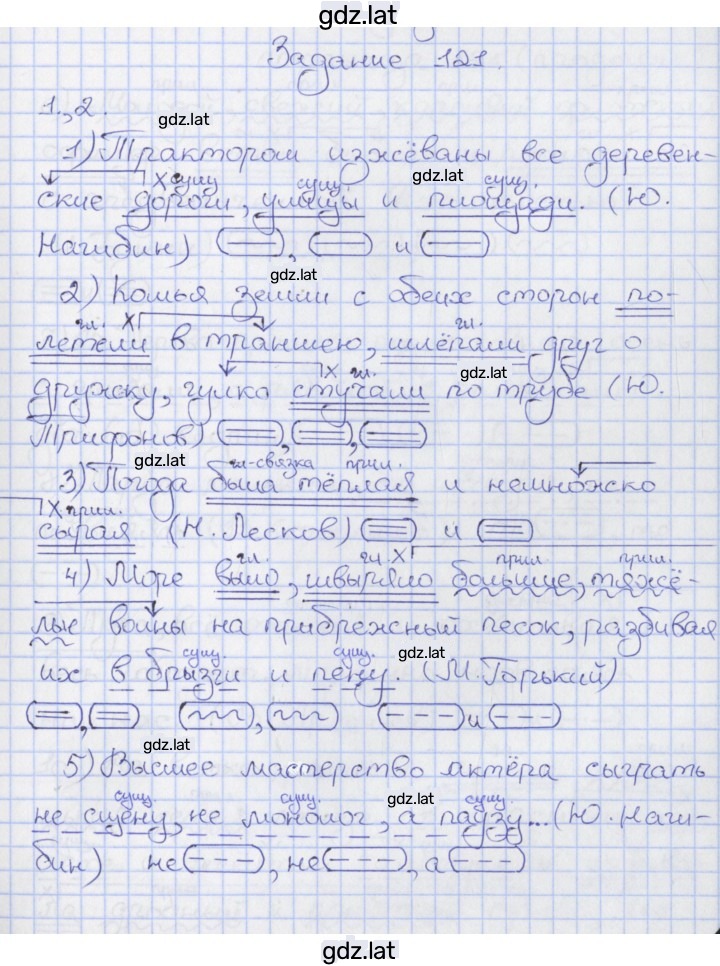 gdz.lat
Задание 121.
1.,2.
gdz.lat
1) Трактором изжёваны все деревен-
X сущ. сущ. gdz.lat сущ.
ские дороги, улицы и площади. (Ю.
Нагибин) , и
gdz.lat
2) Комья земли с обеих сторон по-
гл. X гл.
летели в траншею, шлёпали друг о
X гл. gdz.lat
дружку, гулко стучали по трубе (Ю.
Трифонов) , ,
gdz.lat гл-связка прил.
3) Погода была тёплая и немножко
X прил.
сырая (Н. Лесков) и
gdz.lat гл. гл. X прил. прил.
4) Море выло, швыряло большие, тяжё-
лые волны на прибрежный песок, разбивая
сущ. сущ. gdz.lat
их в брызги и пену. (М. Горький)
, , и
gdz.lat
5) Высшее мастерство актёра сыграть
сущ. сущ. gdz.lat сущ.
не сцену, не монолог, а паузу... (Ю. Наги-
бин) не , не , а
gdz.lat